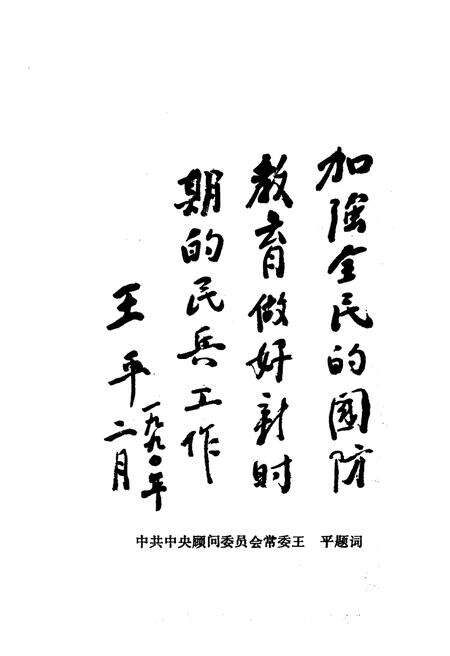 加强全民的国防
教育做好新时
期的民兵工作
王平
一九九〇年
二月
中共中央顾问委员会常委王 平题词